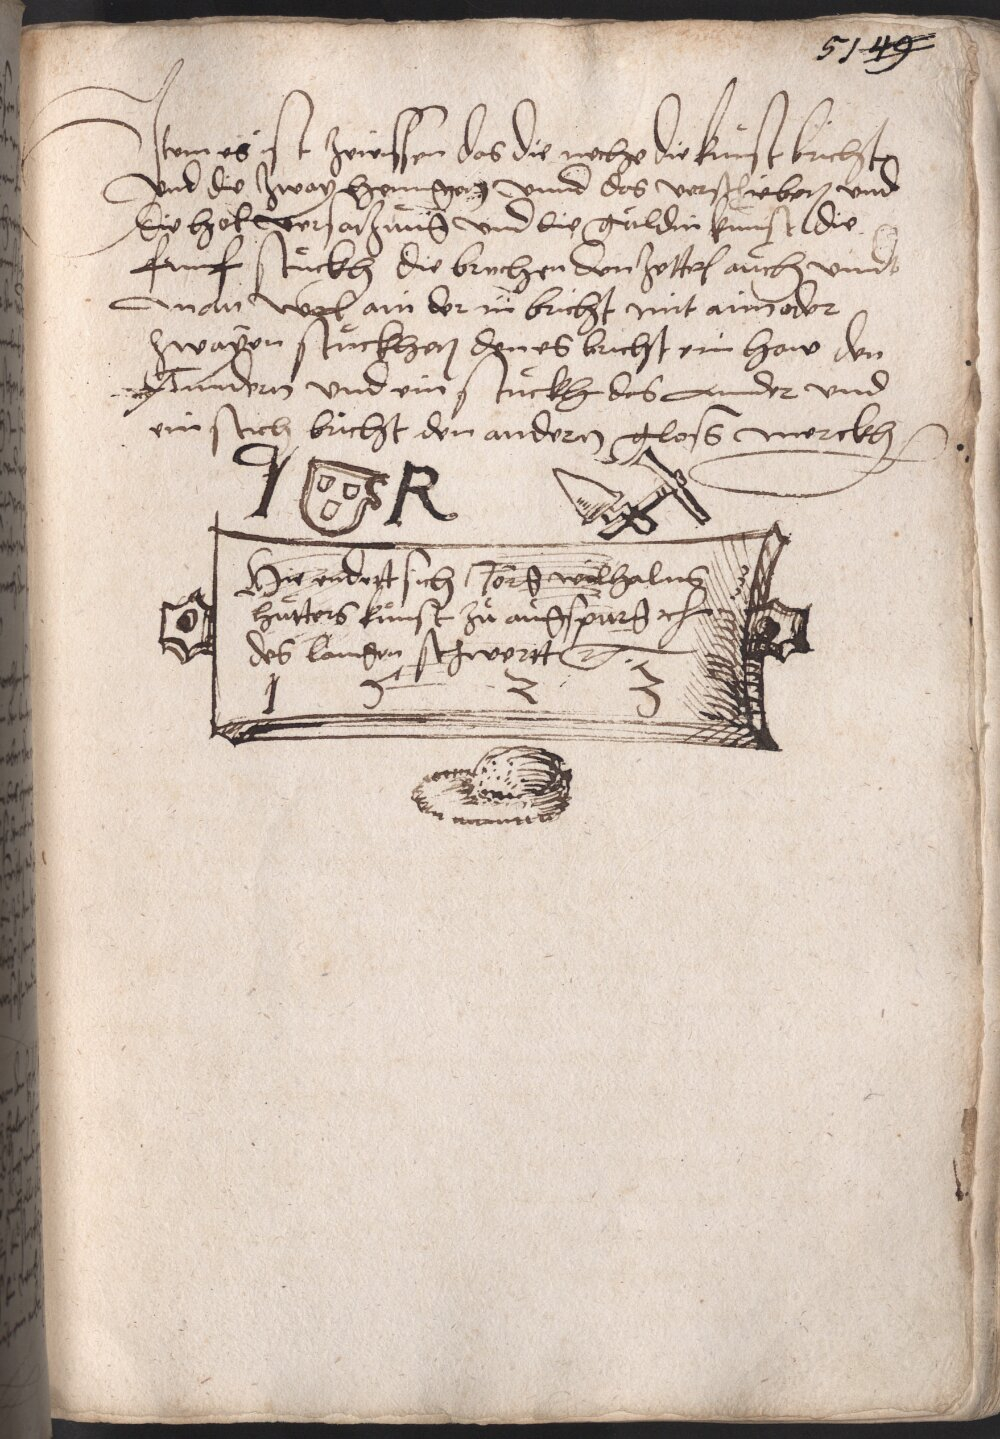 51 49
Item es ist zewissen das die neche die kunst bricht
vnd die zway henngen vnnd das verschieben vnd
die hot versatzung vnd die guldin kunst die
funf stuckh die brechen den zettel auch vnnd
man wol ain der in bricht mit aim oder
zwayen stuckhen den es bricht ein haw den
anndern vnd ein stuckh das annder vnd
ein stich bricht den andern glosß merckh
I S R
Hie endett sich Jörg wilhalms
hutters kunst zu augspurg
des langen schwertt
1 5 2 3